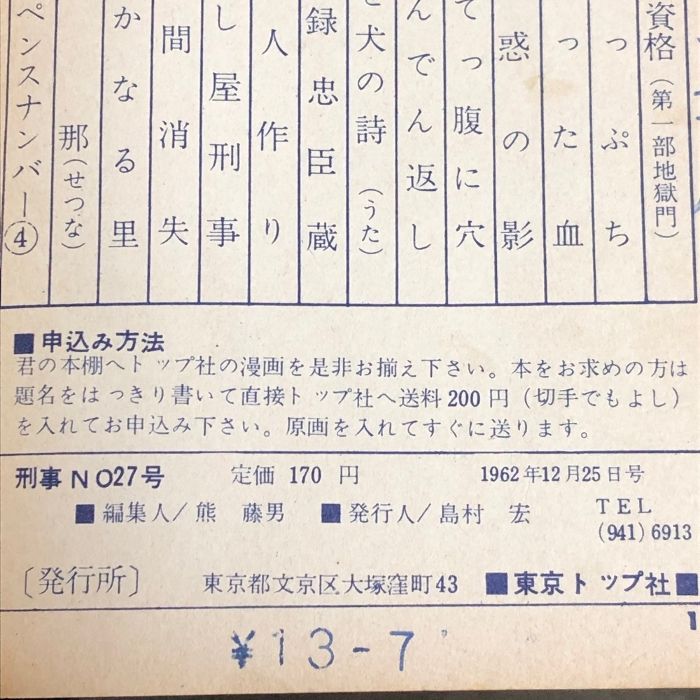 資格(第一部地獄門)
っぷち
った血
惑の影
てっ腹に穴
んでん返し
犬の詩(うた)
録忠臣蔵
人作り
し屋刑事
間消失
かなる里
那(せつな)
ペンスナンバー④
■申込み方法
君の本棚へトップ社の漫画を是非お揃え下さい。本をお求めの方は
題名をはっきり書いて直接トップ社へ送料200円(切手でもよし)
を入れてお申込み下さい。原画を入れてすぐに送ります。
刑事NO27号 定価 170 円 1962年12月25日号
■編集人/熊 藤男 ■発行人/島村 宏 TEL
(941) 6913
〔発行所〕 東京都文京区大塚窪町43 ■東京トップ社■
¥13-7